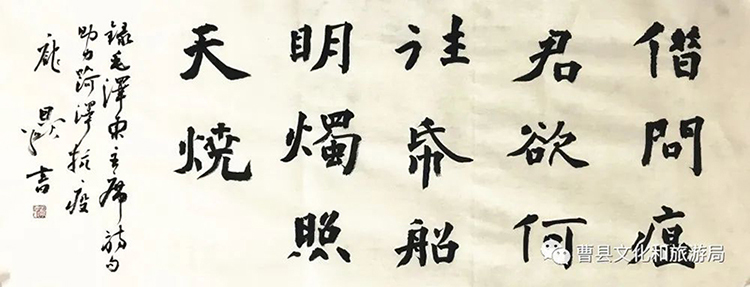 借問瘟
君欲何
往帋船
明燭照
天燒
錄毛澤东主席詩句
助力菏澤抗疫
書
曹县文化和旅游局